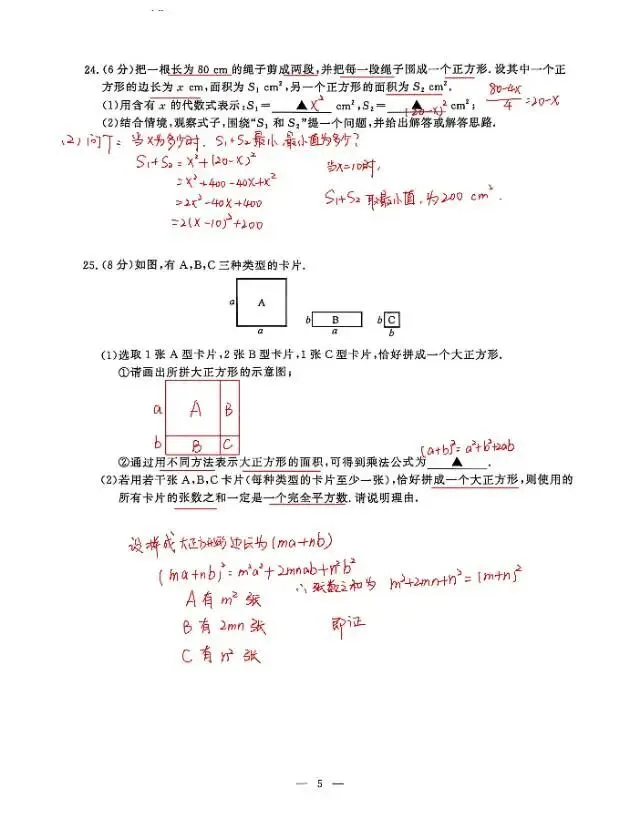 24.(6 分)把一根长为 80 cm 的绳子剪成两段,并把每一段绳子围成一个正方形.设其中一个正
方形的边长为 x cm,面积为 S₁ cm²,另一个正方形的面积为 S₂ cm².
(1)用含有 x 的代数式表示:S₁= ▲ x² cm²,S₂= ▲ (20-x)² cm²; (80-4x)/4=20-x
(2)结合情境,观察式子,围绕“S₁ 和 S₂”提一个问题,并给出解答或解答思路.
(2) 问了:当x为多少时,S₁+S₂最小,最小值为多少?
S₁+S₂=x²+(20-x)²
=x²+400-40x+x²
=2x²-40x+400
=2(x-10)²+200
当x=10时,
S₁+S₂ 取最小值,为200 cm².
25.(8 分)如图,有 A,B,C 三种类型的卡片.
a A a
b B a
b C b
(1)选取 1 张 A 型卡片,2 张 B 型卡片,1 张 C 型卡片,恰好拼成一个大正方形.
①请画出所拼大正方形的示意图;
a A B
b B C
②通过用不同方法表示大正方形的面积,可得到乘法公式为 ▲ .
(a+b)²=a²+b²+2ab
(2)若用若干张 A,B,C 卡片(每种类型的卡片至少一张),恰好拼成一个大正方形,则使用的
所有卡片的张数之和一定是一个完全平方数.请说明理由.
设拼成大正方形的边长为(ma+nb)
(ma+nb)²=m²a²+2mnab+n²b²
A有m²张
B有2mn张
C有n²张
∴张数之和为 m²+2mn+n²=(m+n)²
即证
— 5 —